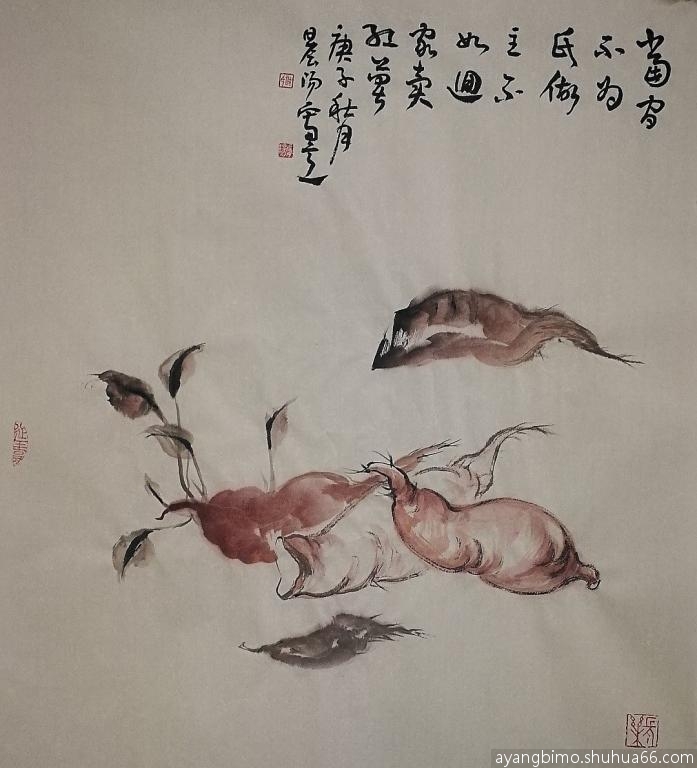 當官
不为
民做
主不
如迴
家卖
红薯
庚子秋月
晨阳
ayangbimo.shuhua66.com